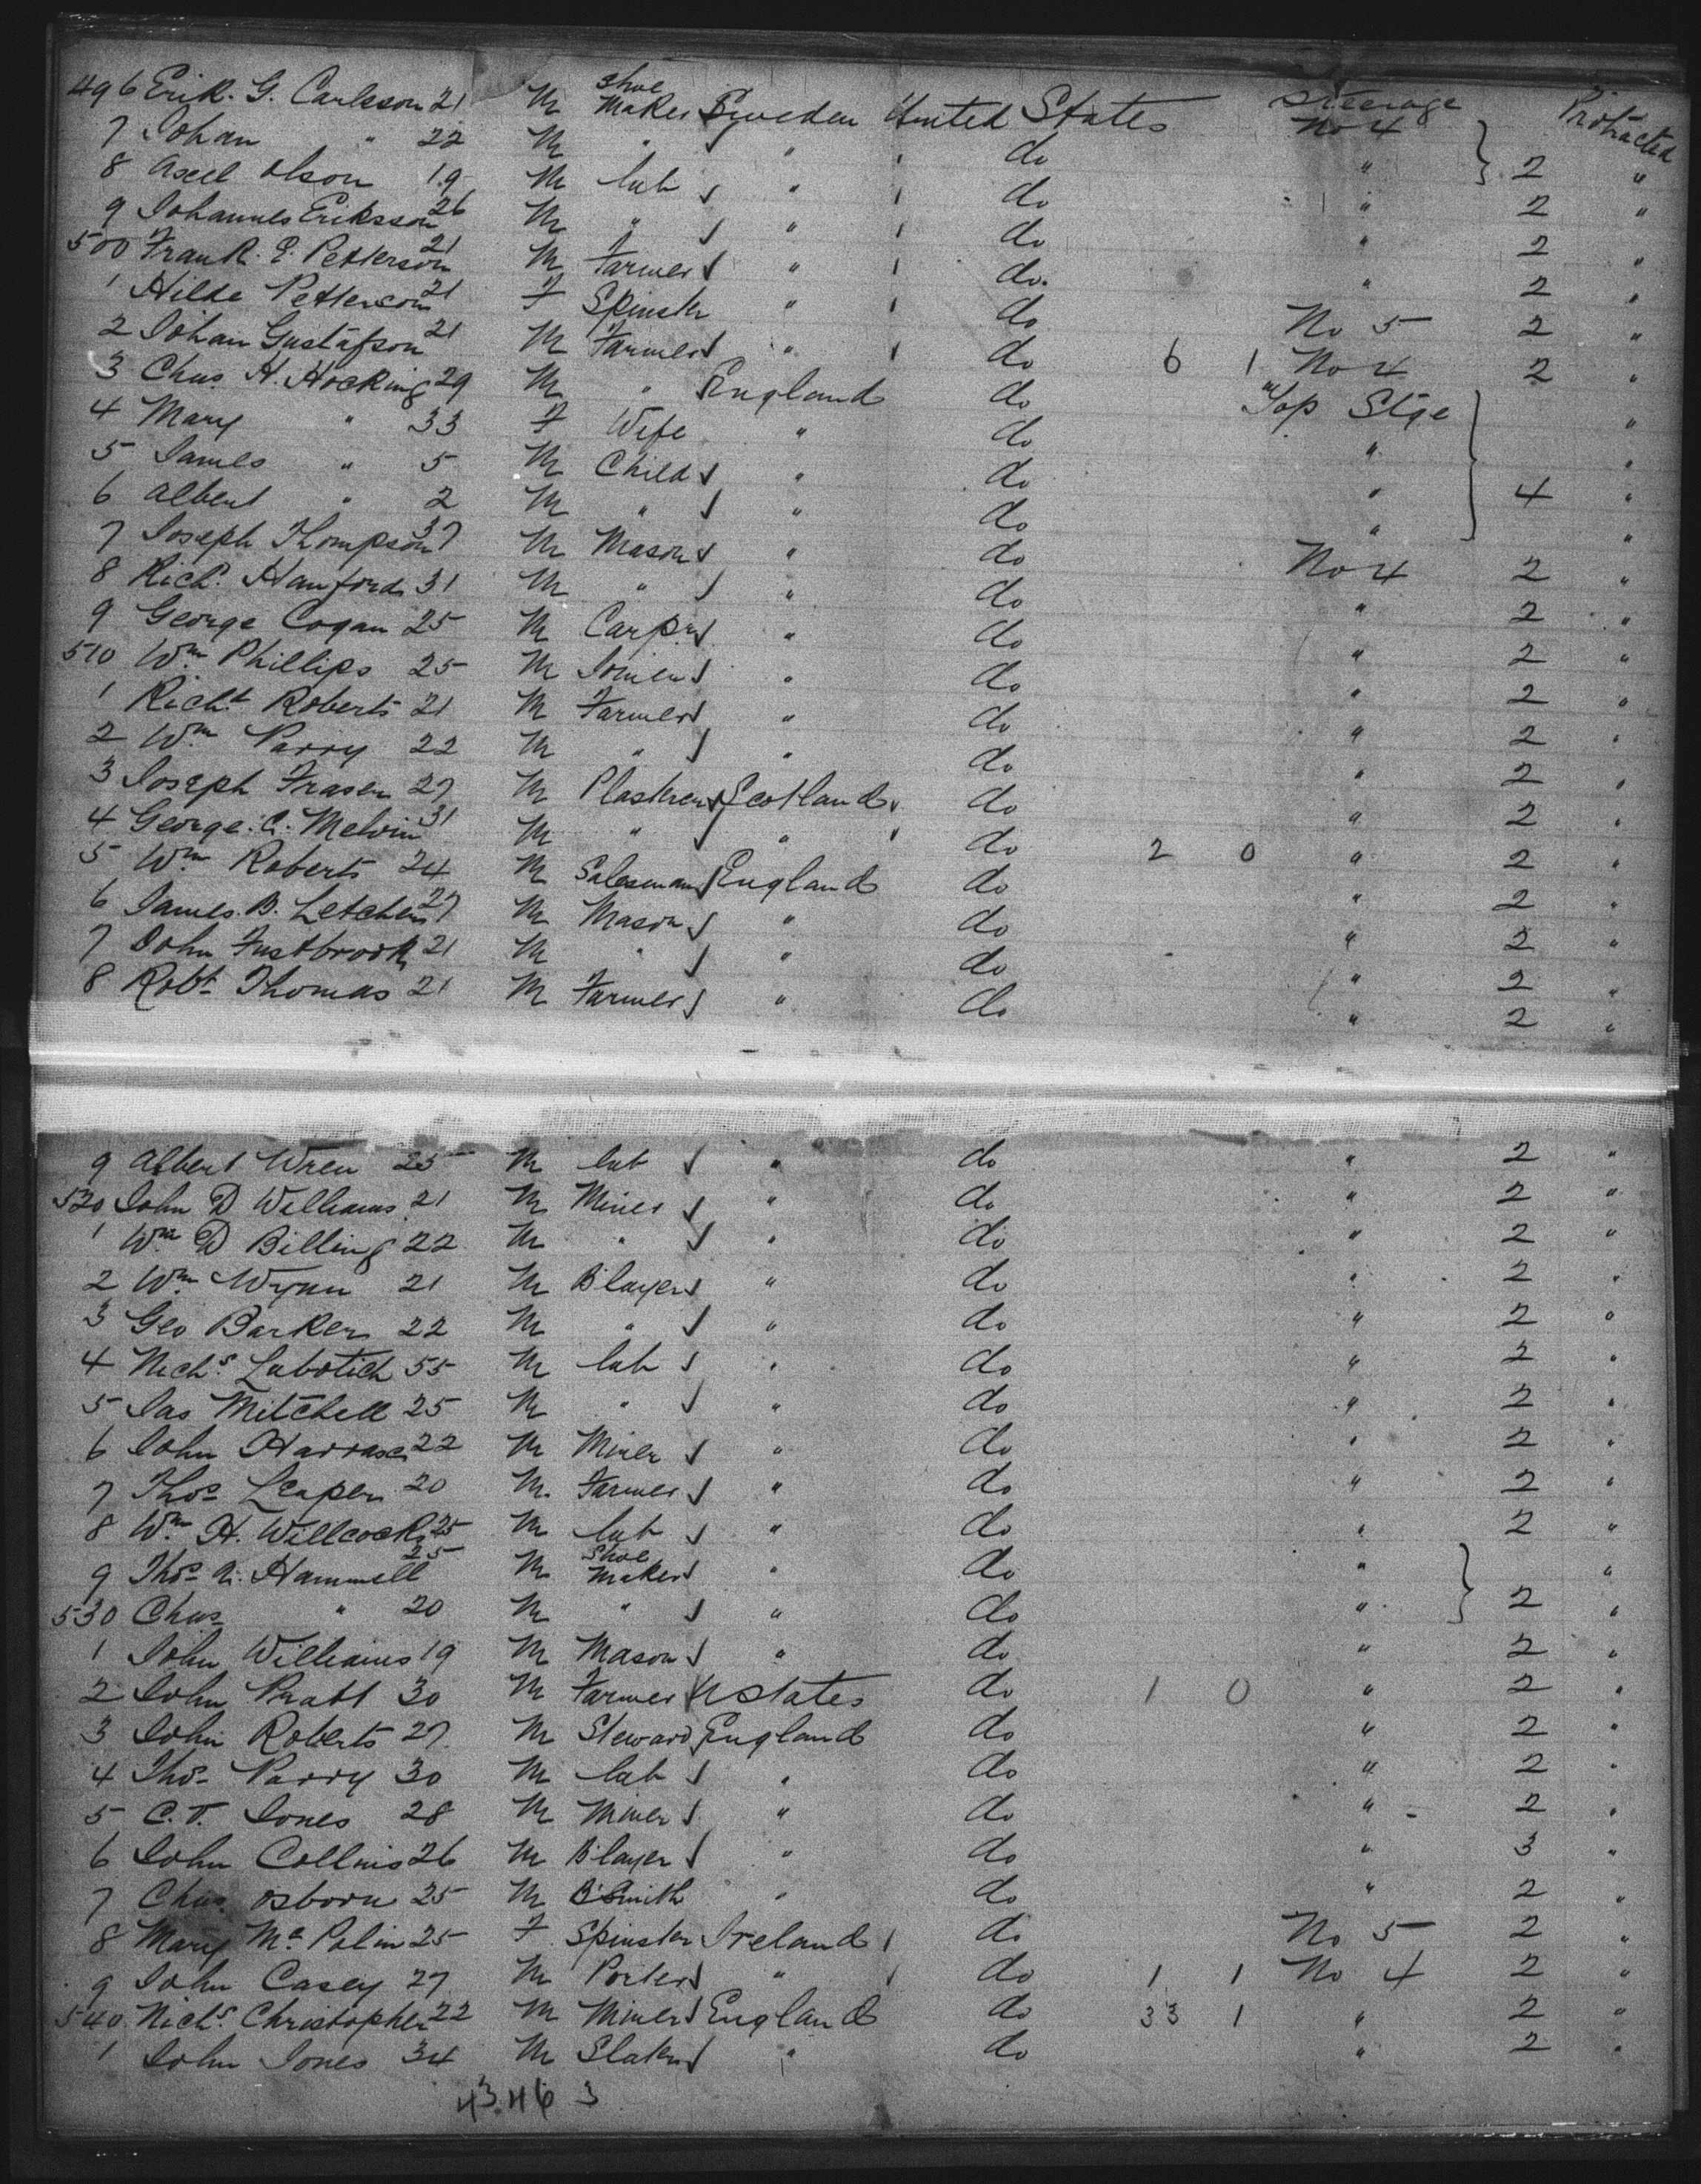 496 Erik. G. Carlsson 21 M Shoe Maker Sweden United States Steerage No 4 Protracted
7 Johan " 22 M " " do " 2 "
8 Axel Olson 19 M Lab " do " 2 "
9 Johannes Eriksson 26 M " " do " 2 "
500 Frank. E. Petterson 21 M Farmer " do. " 2 "
1 Hilda Petterson 21 F Spinster " do No 5 2 "
2 Johan Gustafson 21 M Farmer " do 6 1 No 4 2 "
3 Chas. H. Hocking 29 M " England do Top Stge "
4 Mary " 33 F Wife " do " "
5 James " 5 M Child " do " 4 "
6 Albert " 2 M " " do " "
7 Joseph Thompson 37 M Mason " do No 4 2 "
8 Richd. Hanford 31 M " " do " 2 "
9 George Cogan 25 M Carpr " do " 2 "
510 Wm Phillips 25 M Joiner " do " 2 "
1 Richt Roberts 21 M Farmer " do " 2 "
2 Wm Parry 22 M " " do " 2 "
3 Joseph Fraser 27 M Plasterer Scotland do " 2 "
4 George. C. Melvin 31 M " " do 2 0 " 2 "
5 Wm Roberts 24 M Salesman England do " 2 "
6 James. B. Letcher 27 M Mason " do " 2 "
7 John 21 M " " do " 2 "
8 Robt Thomas 21 M Farmer " do " 2 "
9 Albert Wren 25 M Lab " do " 2 "
520 John D Williams 21 M Miner " do " 2 "
1 Wm D Billing 22 M " " do " 2 "
2 Wm Wynn 21 M Blayer " do " 2 "
3 Geo Barker 22 M " " do " 2 "
4 Nichs. Labotich 55 M Lab " do " 2 "
5 Jas Mitchell 25 M " " do " 2 "
6 John 22 M Miner " do " 2 "
7 Thos Leaper 20 M Farmer " do " 2 "
8 Wm H. Willcocks 25 M Lab " do " 2 "
9 Thos Hammell 25 M Shoe Maker " do " "
530 Chas " 20 M " " do " 2 "
1 John Williams 19 M Mason " do " 2 "
2 John Pratt 30 M Farmer U States do 1 0 " 2 "
3 John Roberts 27 M Steward England do " 2 "
4 Thos Parry 30 M Lab " do " 2 "
5 C. T. Jones 28 M Miner " do " 2 "
6 John Collins 26 M Blayer " do " 3 "
7 Chas. Osborn 25 M B Smith " do " 2 "
8 Mary Mc Polin 25 F Spinster Ireland do No 5 2 "
9 John Casey 27 M Porter " do 1 1 No 4 2 "
540 Nichs. Christopher 22 M Miner England do 33 1 " 2 "
1 John Jones 34 M Slater " do " 2 "
43.46 3